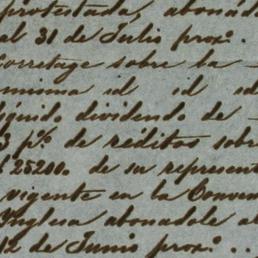 protestada, abonada
al 31 de Julio proxº.
Corretage sobre la
misma id id id
líquido dividendo de
3 p% de réditos sobre
$ 25200. de su represent
vigente en la Conven
Ynglesa abonadele al
12 de Junio proxº. . .